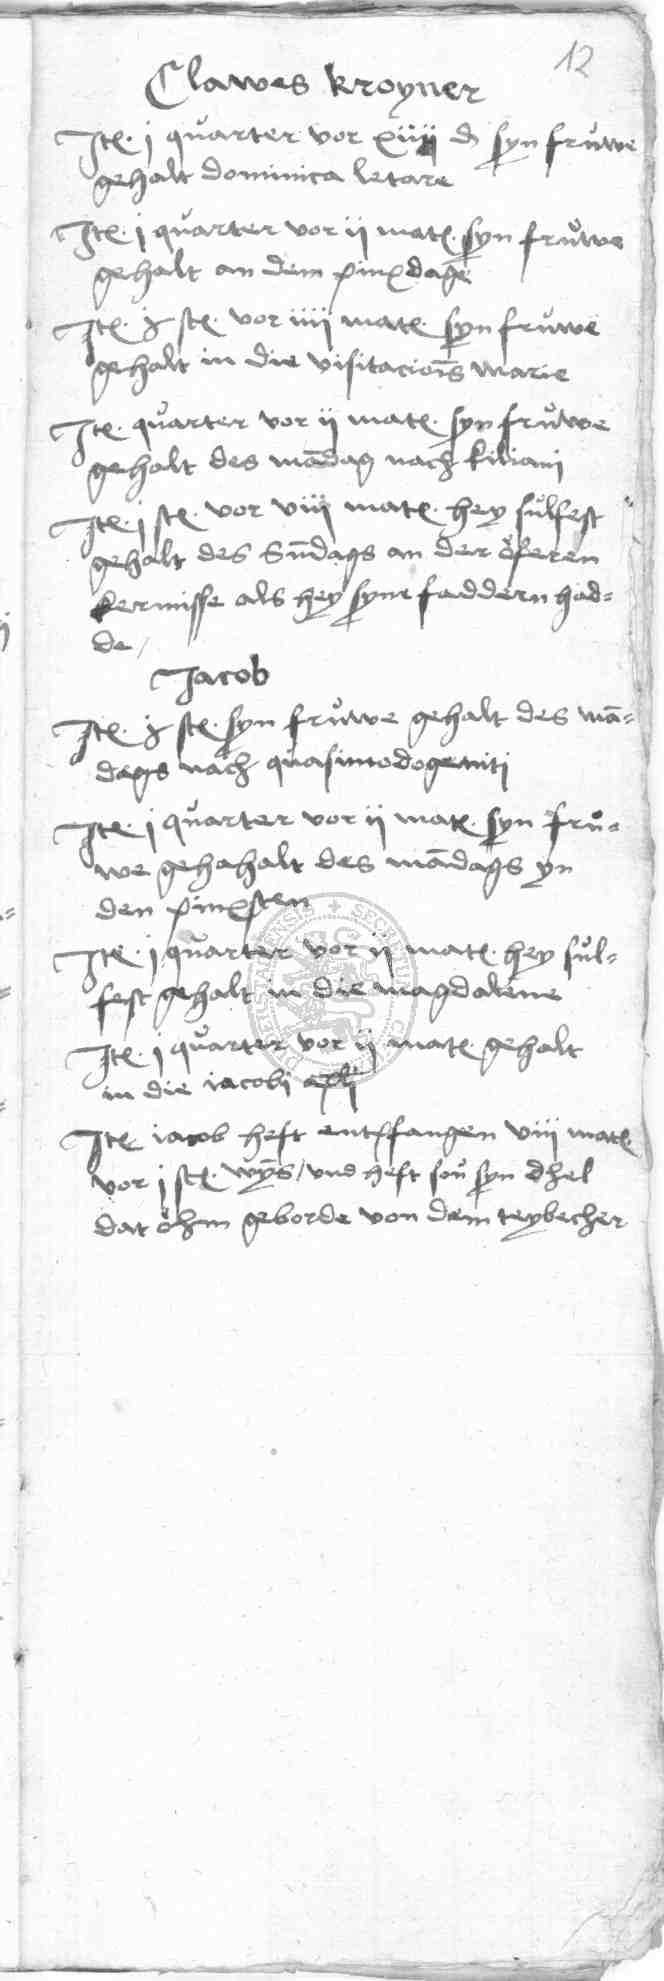 12
Clawes kroyner
Itē. j quarter vor xiiij d syn fruwe
gehalt dominica letare
Itē. j quarter vor ij matē. syn fruwe
gehalt an dem pinxdage
Itē. stē. vor iiij matē. syn fruwe
gehalt in die visitacioīs marie
Itē. quarter vor ij matē. syn fruwe
gehalt des mādag nach kiliani
Itē. j stē. vor viij matē. hey sulfest
gehalt des Sūdags an der öferen
kermisse als hey syne faddern had=
de /
Jacob
Itē. stē. syn fruwe gehalt des mā=
dags nach quasimodogeniti
Itē. j quarter vor ij matē. syn fru=
we gehahalt des mādags yn
den pinxsten
Itē. j quarter vor ij matē. hey sul=
fest gehalt in die magdalene
Itē. j quarter vor ij matē. gehalt
in die iacobi apli
Itē iacob heft entpfangen viij matē.
vor j stē. wÿs / vnd heft sou syn dhel
dat öhm geborde von dem teybecher